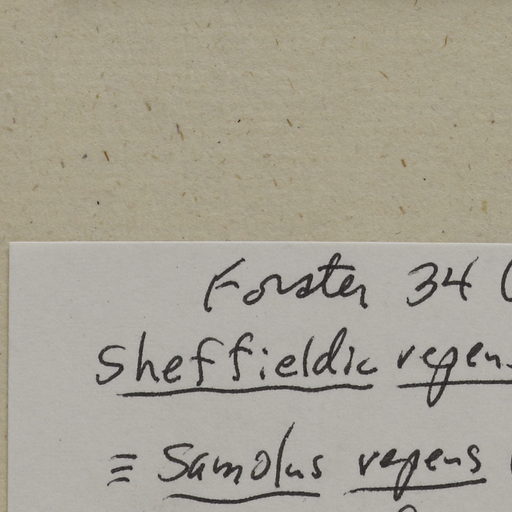 Forster 34 (
Sheffieldia repens
≡ Samolus repens (